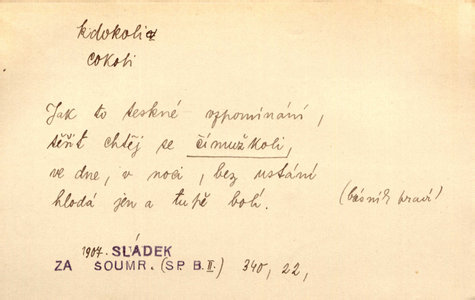 kdokoli
cokoli
Jak to teskné vzpomínání,
těšit chtěj se čímužkoli,
ve dne, v noci, bez ustání
hlodá jen a tupě bolí. (básník praví)
1907. SLÁDEK
ZA SOUMR. (SP B. II.) 340, 22,